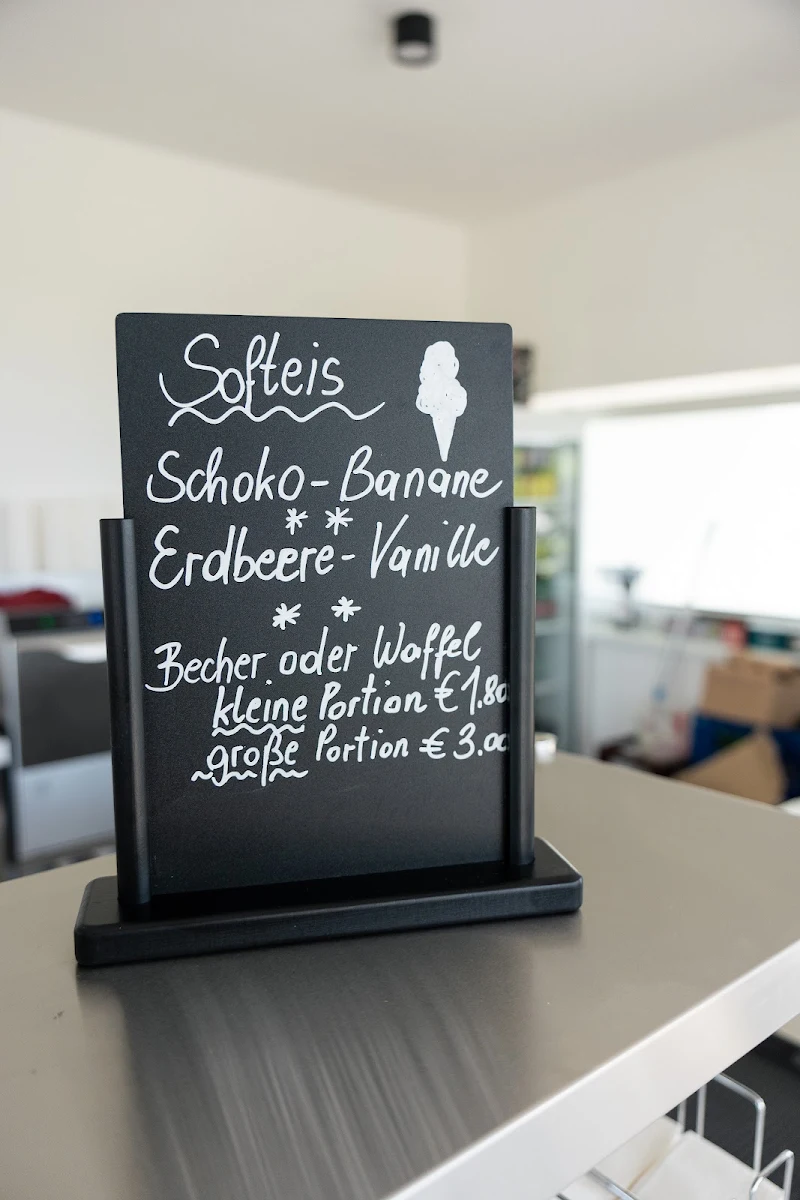 Softeis
Schoko-Banane
* *
Erdbeere-Vanille
* *
Becher oder Waffel
kleine Portion € 1.80
große Portion € 3.00